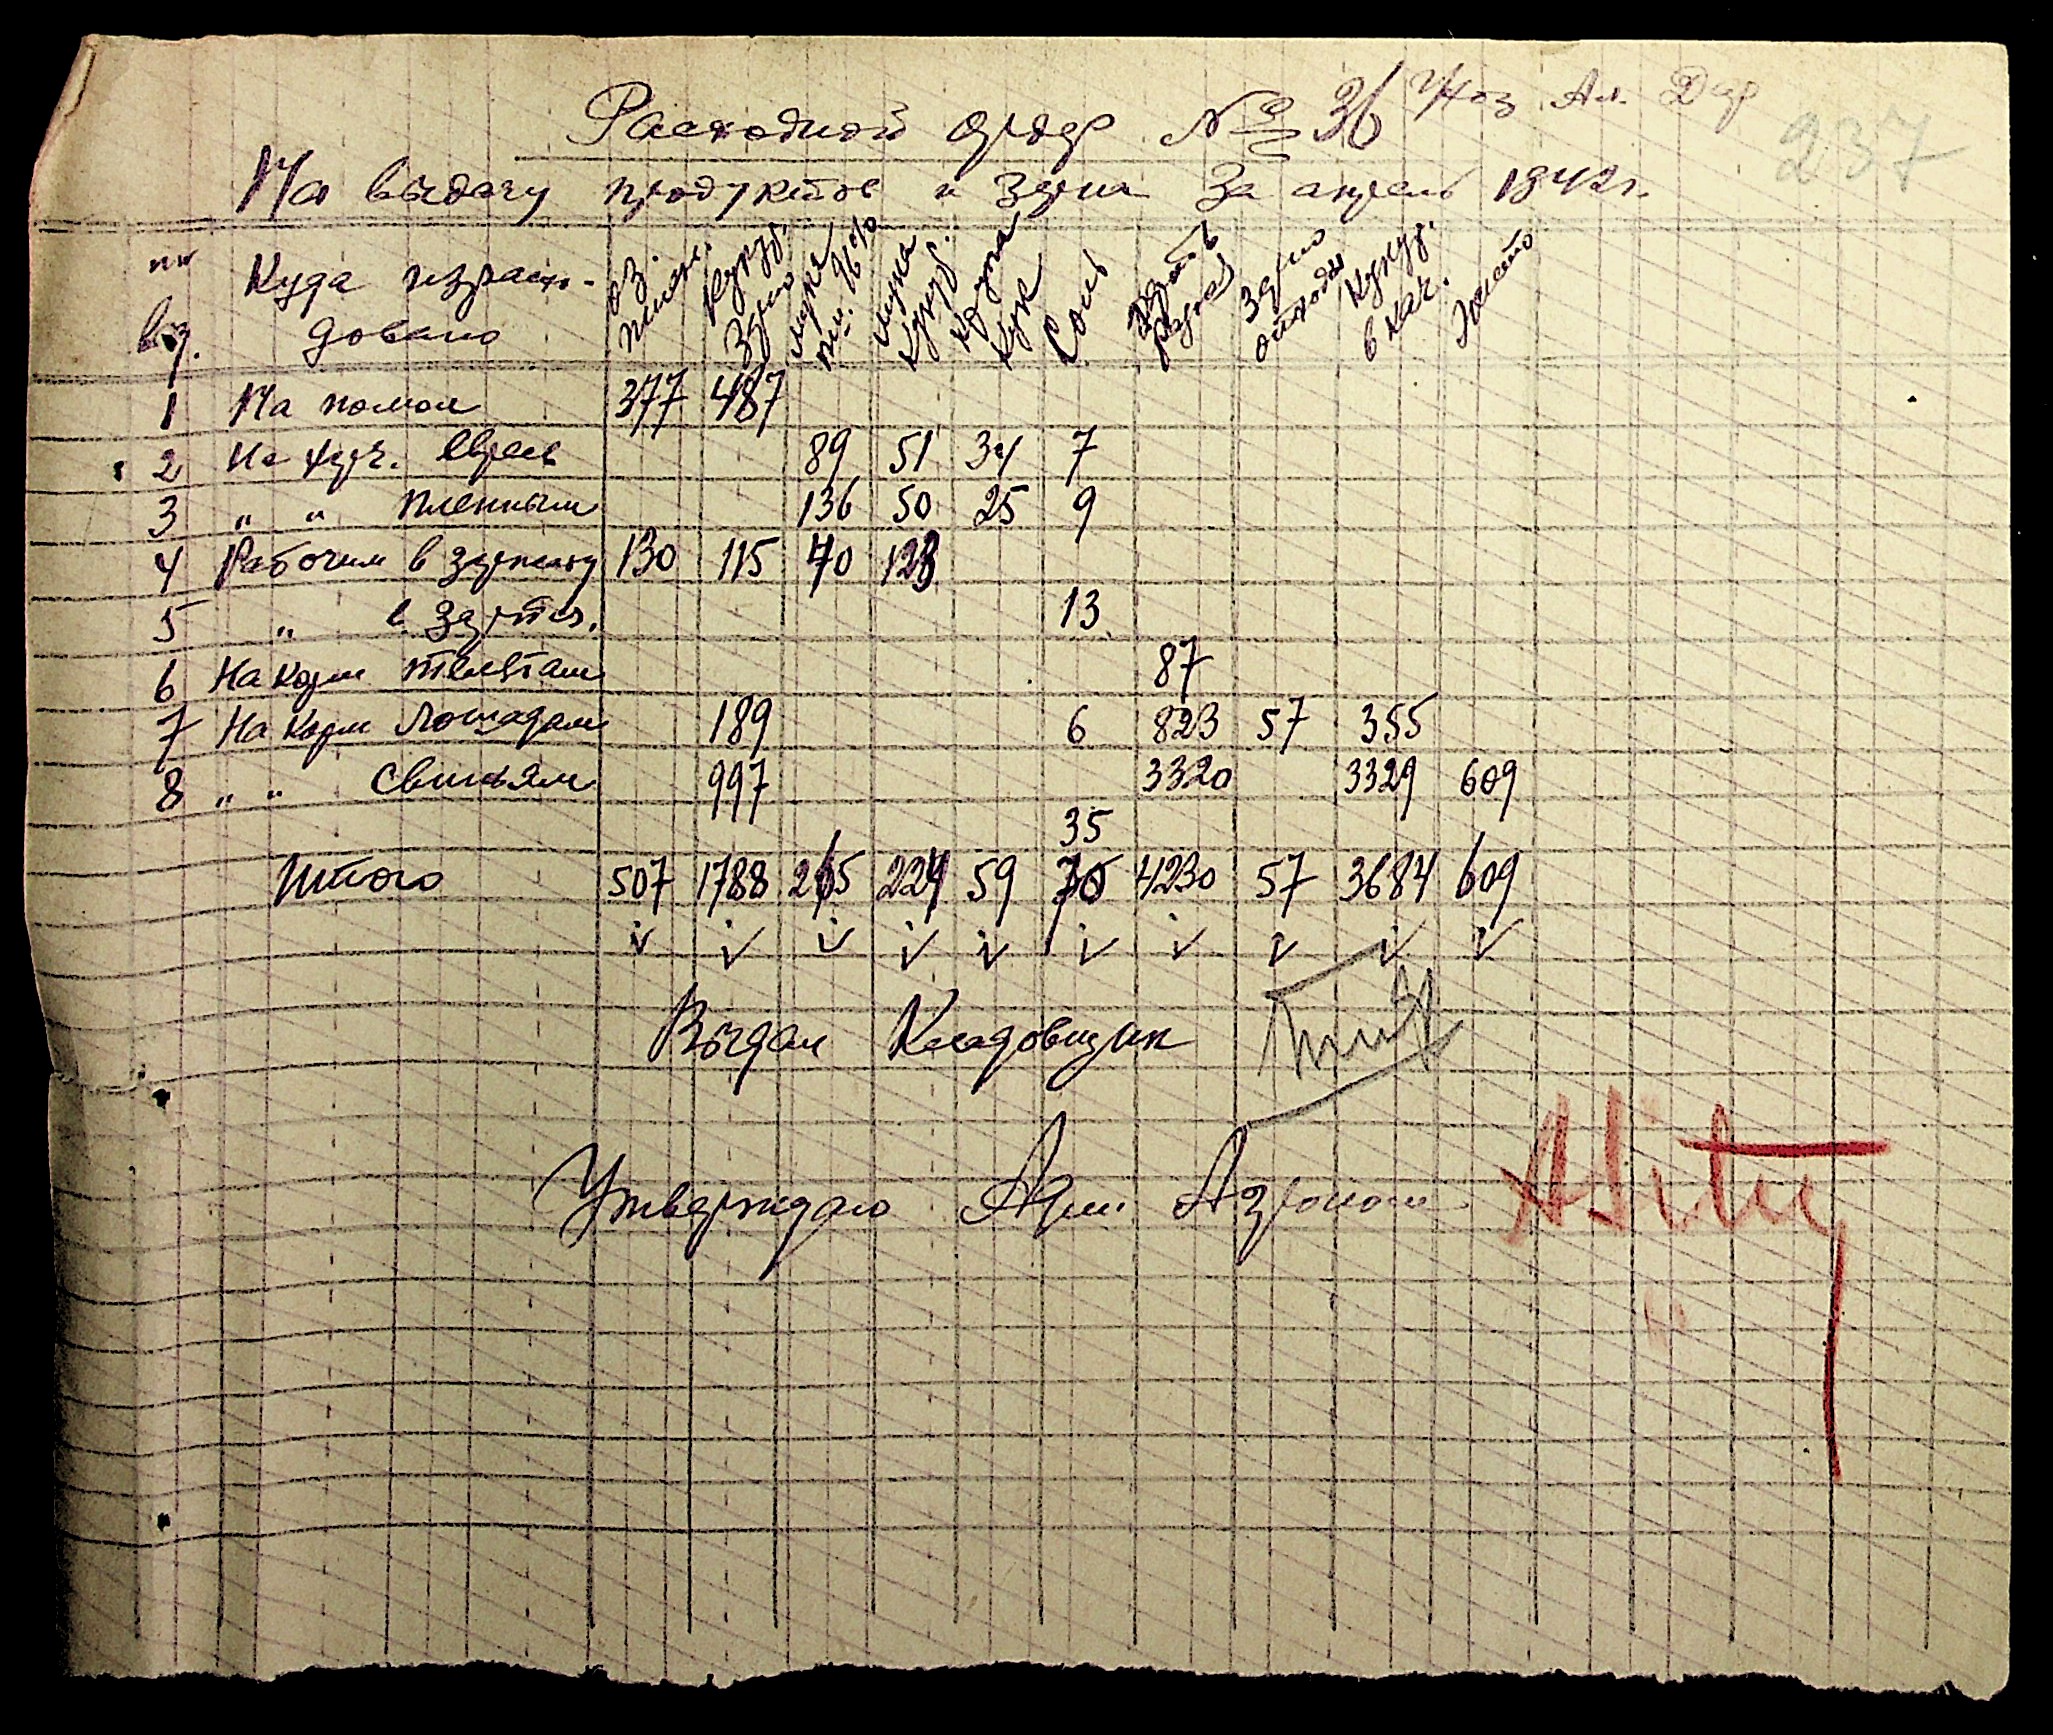 Расходной ордер № 36 Хоз. Ал. Дар
237
На выдачу продуктов и зерна За апрель 1942 г.
Куда израсх-
довано
оз. пшен.
Кукур. зерно
мука пш. 96%
мука кукур.
крупа кук
Соль
Зерно отходы
Кукур. в кач.
1 На помол 377 487
2 На харч. Евреев 89 51 34 7
3 " " пленным 136 50 25 9
4 Рабочим в зарплату 130 115 40 123
5 " в 13
6 На корм телятам 87
7 На корм лошадям 189 6 823 57 355
8 " " свиньям 997 3320 3329 609
35
Итого 507 1788 265 224 59 4230 57 3684 609
Выдал Кладовщик
Утверждаю Агроном